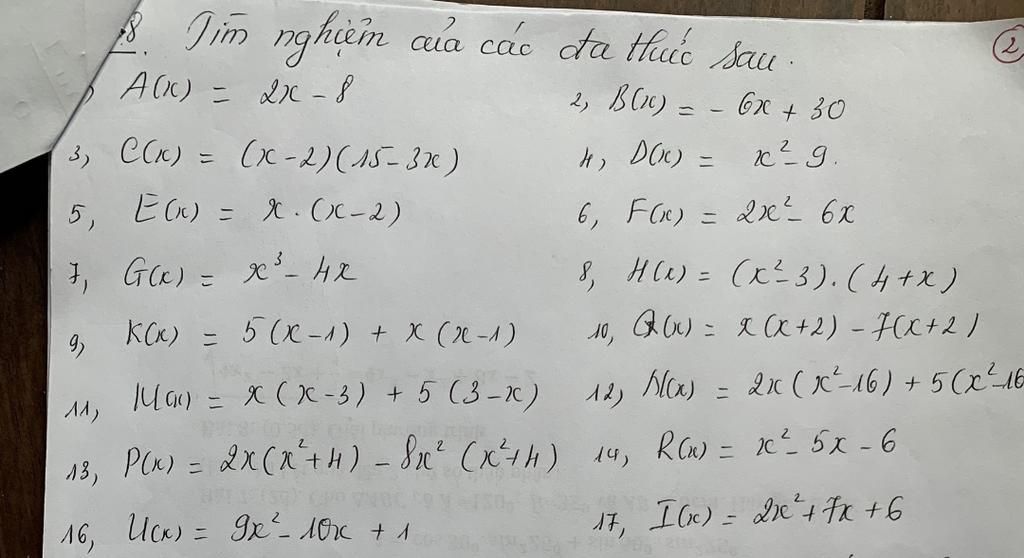 8. Tìm nghiệm của các đa thức sau. 2
) A(x) = 2x - 8 2, B(x) = - 6x + 30
3, C(x) = (x-2)(15-3x) 4, D(x) = x² - 9.
5, E(x) = x.(x-2) 6, F(x) = 2x² - 6x
7, G(x) = x³ - 4x 8, H(x) = (x²-3).(4+x)
9, K(x) = 5(x-1) + x(x-1) 10, Q(x) = x(x+2) - 7(x+2)
11, M(x) = x(x-3) + 5(3-x) 12, N(x) = 2x(x²-16) + 5(x²-16
13, P(x) = 2x(x²+4) - 8x²(x²+4) 14, R(x) = x² - 5x - 6
16, U(x) = 9x² - 10x + 1 17, I(x) = 2x² + 7x + 6